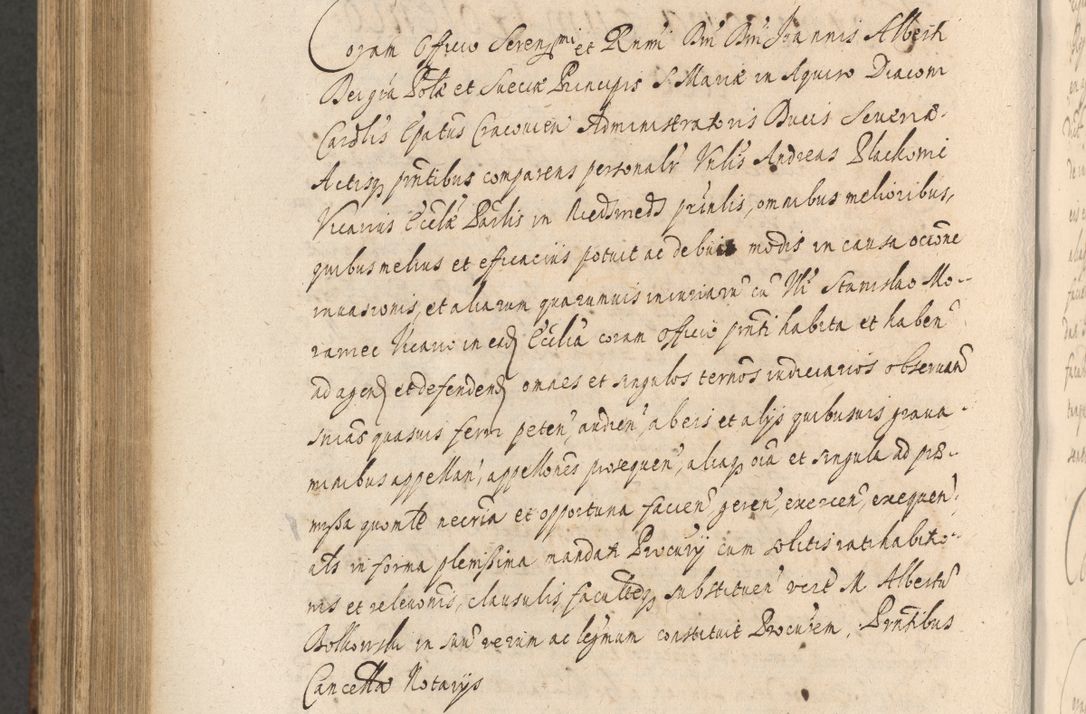 Coram Officio Serenssmi et Rnmi Dni Dni Joannis Alberti
Dei gra Polæ et Sueciæ Principis S. Mariæ in Aquiro Diaconi
Cardlis Epatus Cracovien Administratoris Ducis Severiæ.
Actisq prntibus comparens personalr Vnlis Andreas Plachowic
Vicarius Ecclæ Parlis in prinlis, omnibus melioribus,
quibus melius et efficacius potuit ac debuit modis in causa occone
invasionis, et aliarum quarumvis iniuriaru cu Vli Stanislao Mo-
rawiec Vicario in ead Ecclia coram officio prnti habita et haben
ad agend et defendend omnes et singulos ternos iudiciarios observand
snias quasvis ferri peten, audien, ab eis et alijs quibusvis grava-
minibus appellan, appellones prosequen, aliaq oia et singula ad præ-
missa quomlt necria et opportuna facien, geren, exercen, exequen,
als in forma plenissima mandati Procurij cum solitis ratihabito-
nis et relevonis, clausulis, facultesq substituen vere M. Albertu
Bolkowski in suu verum ac legmum constituit Procurem. Prntibus
Cancellæ Notarijs